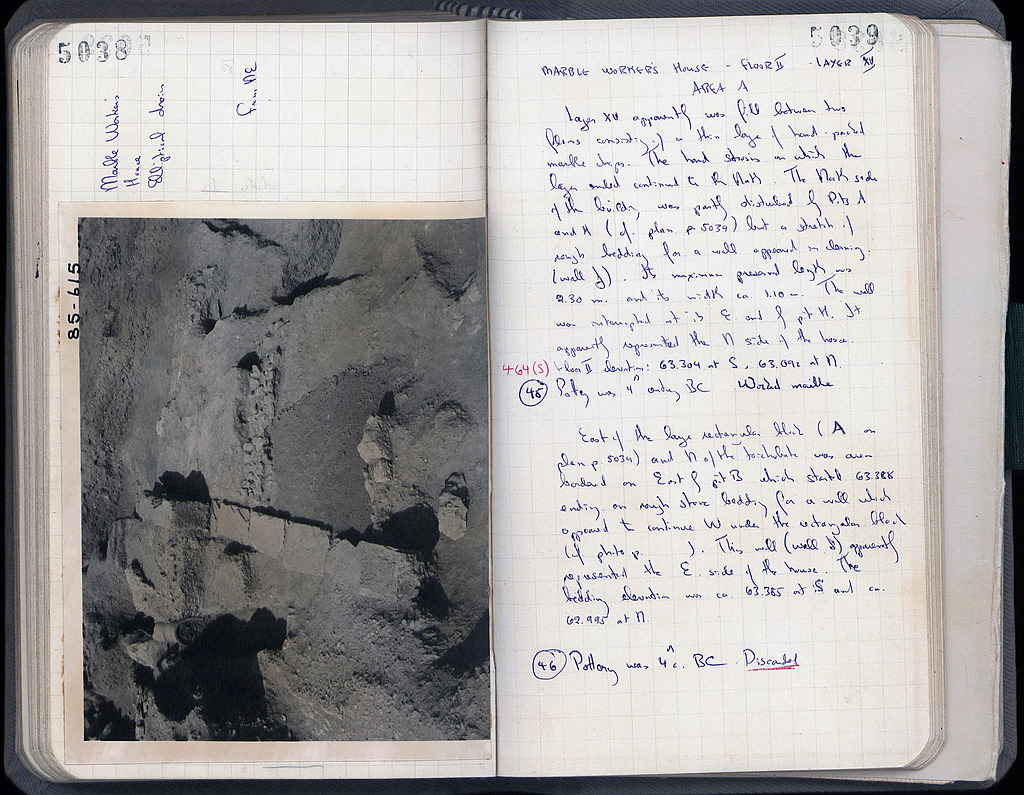 5038
Marble Worker's
House
Elliptical drain
from NE
85-615
5039
MARBLE WORKER'S HOUSE - FLOOR II LAYER XV
AREA A
Layer XV apparently was fill between two
floors consisting of a thin layer of hard-packed
marble chips. The hard stratum on which the
layer ended continued to the North. The North side
of the building was partly disturbed by Pits A
and H (cf. plan p. 5034) but a stretch of
rough bedding for a wall appeared in cleaning
(wall J). Its maximum preserved length was
2.30 m. and its width ca. 1.10 m. The wall
was interrupted at its E end by pit H. It
apparently represented the N side of the house.
464(S) Floor II elevation: 63.304 at S, 63.092 at N.
45 Pottery was 4th century BC Worked marble
East of the large rectangular block (A on
plan p. 5034) and N of the was area
bordered on East by pit B which started 63.388
ending on rough stone bedding for a wall which
appeared to continue W under the rectangular block
(cf photo p. ). This wall (wall ) apparently
represented the E. side of the house. The
bedding elevation was ca. 63.385 at S and ca.
62.995 at N.
46 Pottery was 4th c. BC Discarded